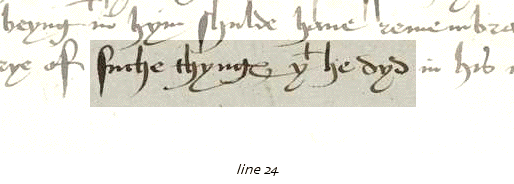 beyng in hym shulde have remembra
rye of suche thynges yt he dyd in his
line 24